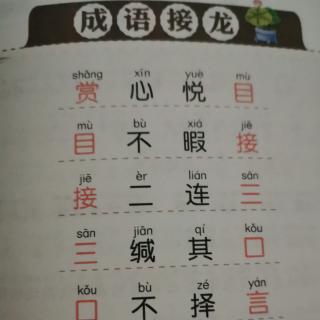 成语接龙
shǎng xīn yuè mù
赏心悦目
mù bù xiá jiē
目不暇接
jiē èr lián sān
接二连三
sān jiān qí kǒu
三缄其口
kǒu bù zé yán
口不择言